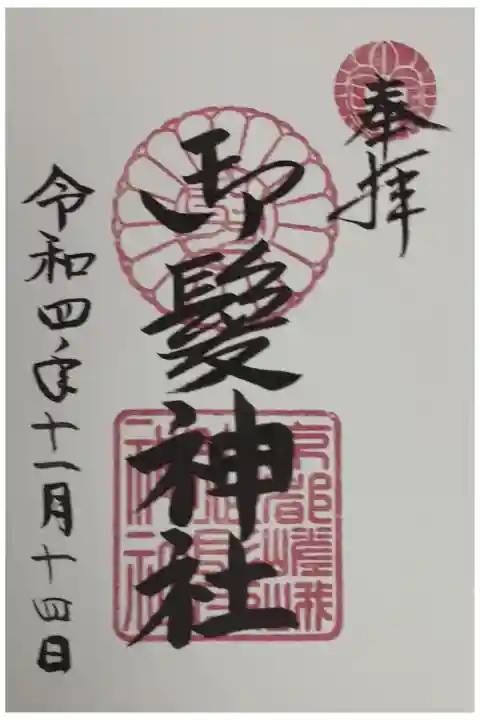 奉拝
御髪神社
京都嵯峨
令和四年十一月十四日